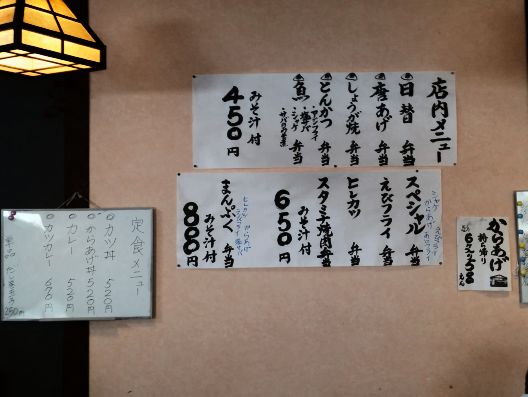 店内メニュー
日替 弁当
唐あげ 弁当
しょうが焼 弁当
とんかつ 弁当
魚 弁当
・アジフライ
・塩サバ
・シャケ
みそ汁付
450円
スペシャル 弁当
えびフライ 弁当
ヒレカツ 弁当
スタミナ焼肉弁当
みそ汁付
650円
まんぷく弁当
みそ汁付
880円
からあげ
持ち帰り
定食メニュー
カツ丼 520円
からあげ丼 520円
カレー 520円
カツカレー 670円
250円